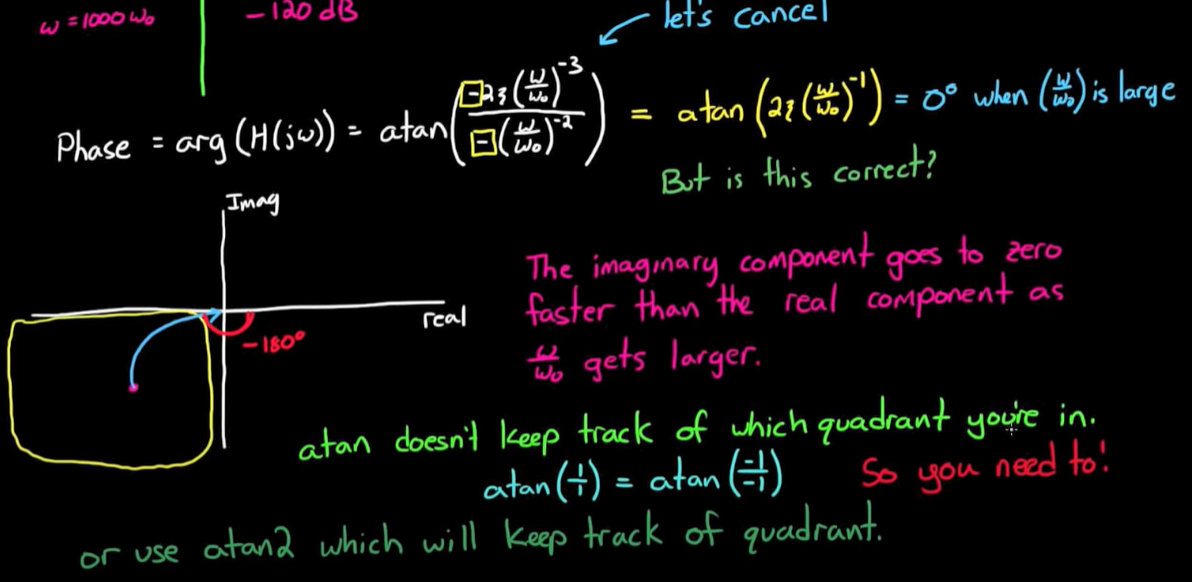 ω = 1000 ω₀
-120 dB
let's cancel
Phase = arg (H(jω)) = atan( -2ζ(ω/ω₀)^-3 / -(ω/ω₀)^-2 ) = atan (2ζ(ω/ω₀)^-1) = 0° when (ω/ω₀) is large
But is this correct?
Imag
real
-180°
The imaginary component goes to zero
faster than the real component as
ω/ω₀ gets larger.
atan doesn't keep track of which quadrant you're in.
atan(1/1) = atan(-1/-1)
So you need to!
or use atan2 which will keep track of quadrant.